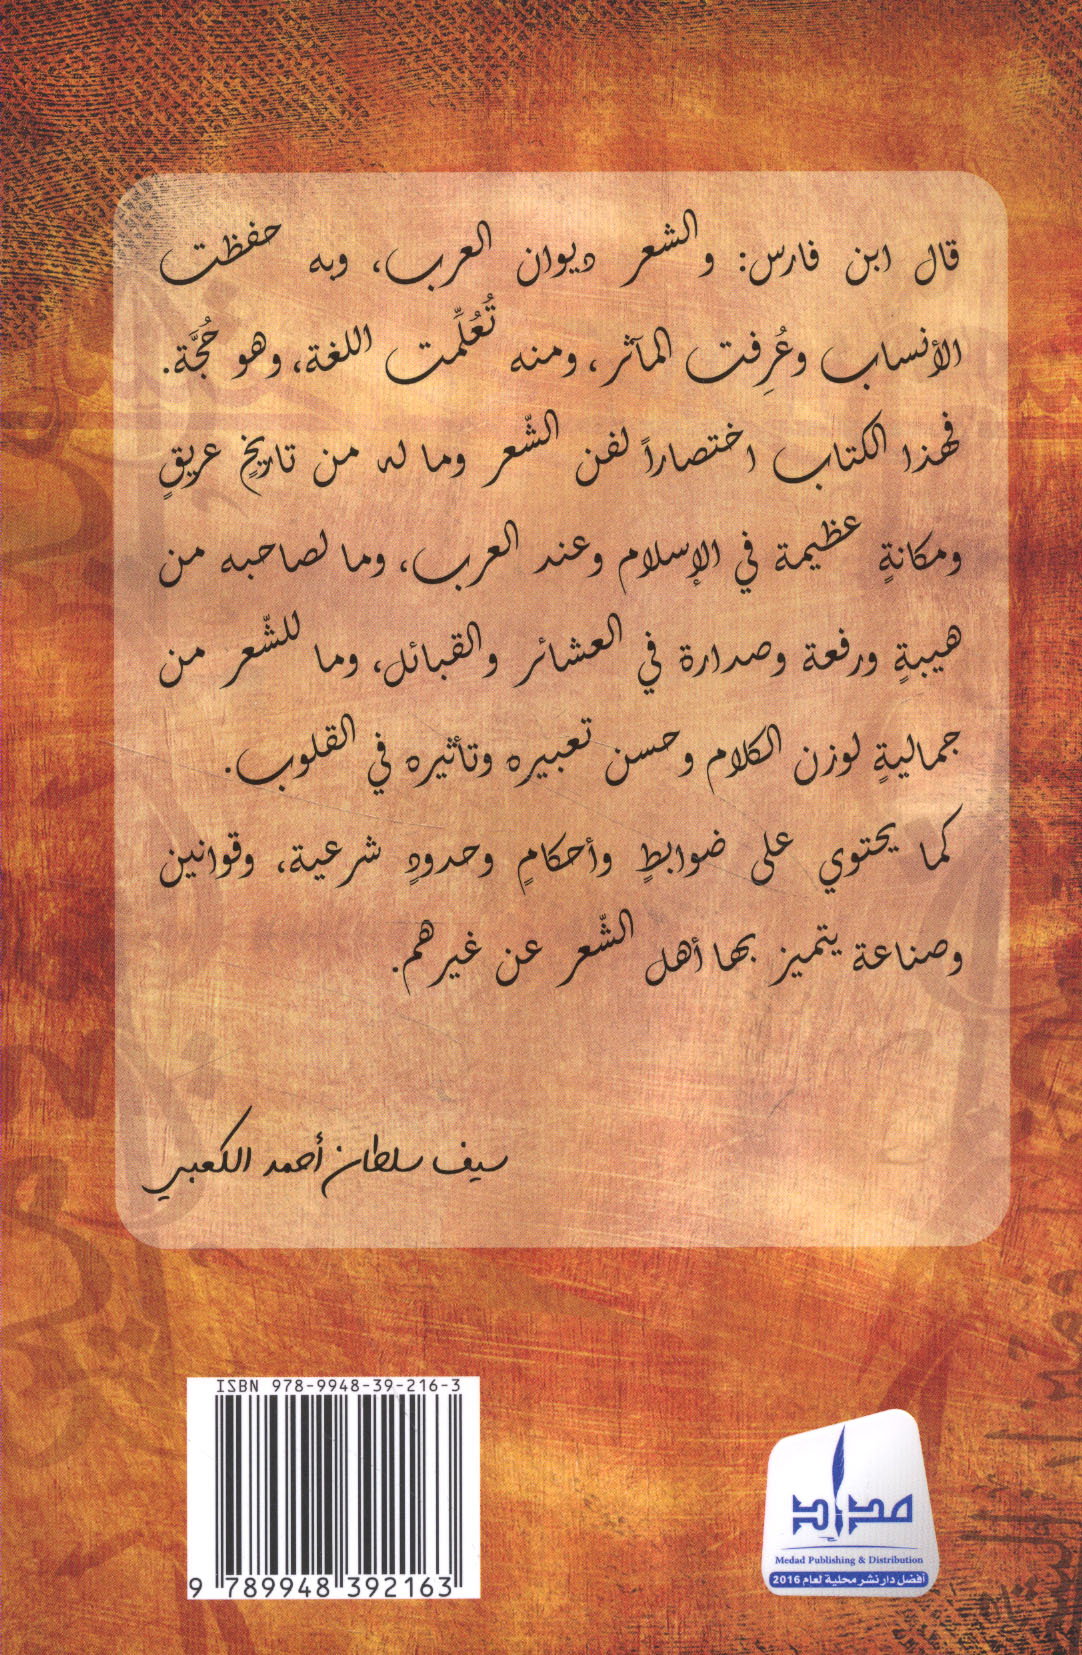 قال ابن فارس: والشعر ديوان العرب، وبه حفظت
الأنساب وعُرِفت المآثر، ومنه تُعُلِّمت اللغة، وهو حُجَّة.
فهذا الكتاب اختصاراً لفن الشّعر وما له من تاريخٍ عريقٍ
ومكانةٍ عظيمة في الإسلام وعند العرب، وما لصاحبه من
هيبةٍ ورفعة وصدارة في العشائر والقبائل، وما للشّعر من
جماليةٍ لوزن الكلام وحسن تعبيره وتأثيره في القلوب.
كما يحتوي على ضوابطٍ وأحكامٍ وحدودٍ شرعية، وقوانين
وصناعة يتميز بها أهل الشّعر عن غيرهم.
سيف سلطان أحمد الكعبي
ISBN 978-9948-39-216-3
9 789948 392163
مداد
Medad Publishing & Distribution
أفضل دار نشر محلية لعام 2016